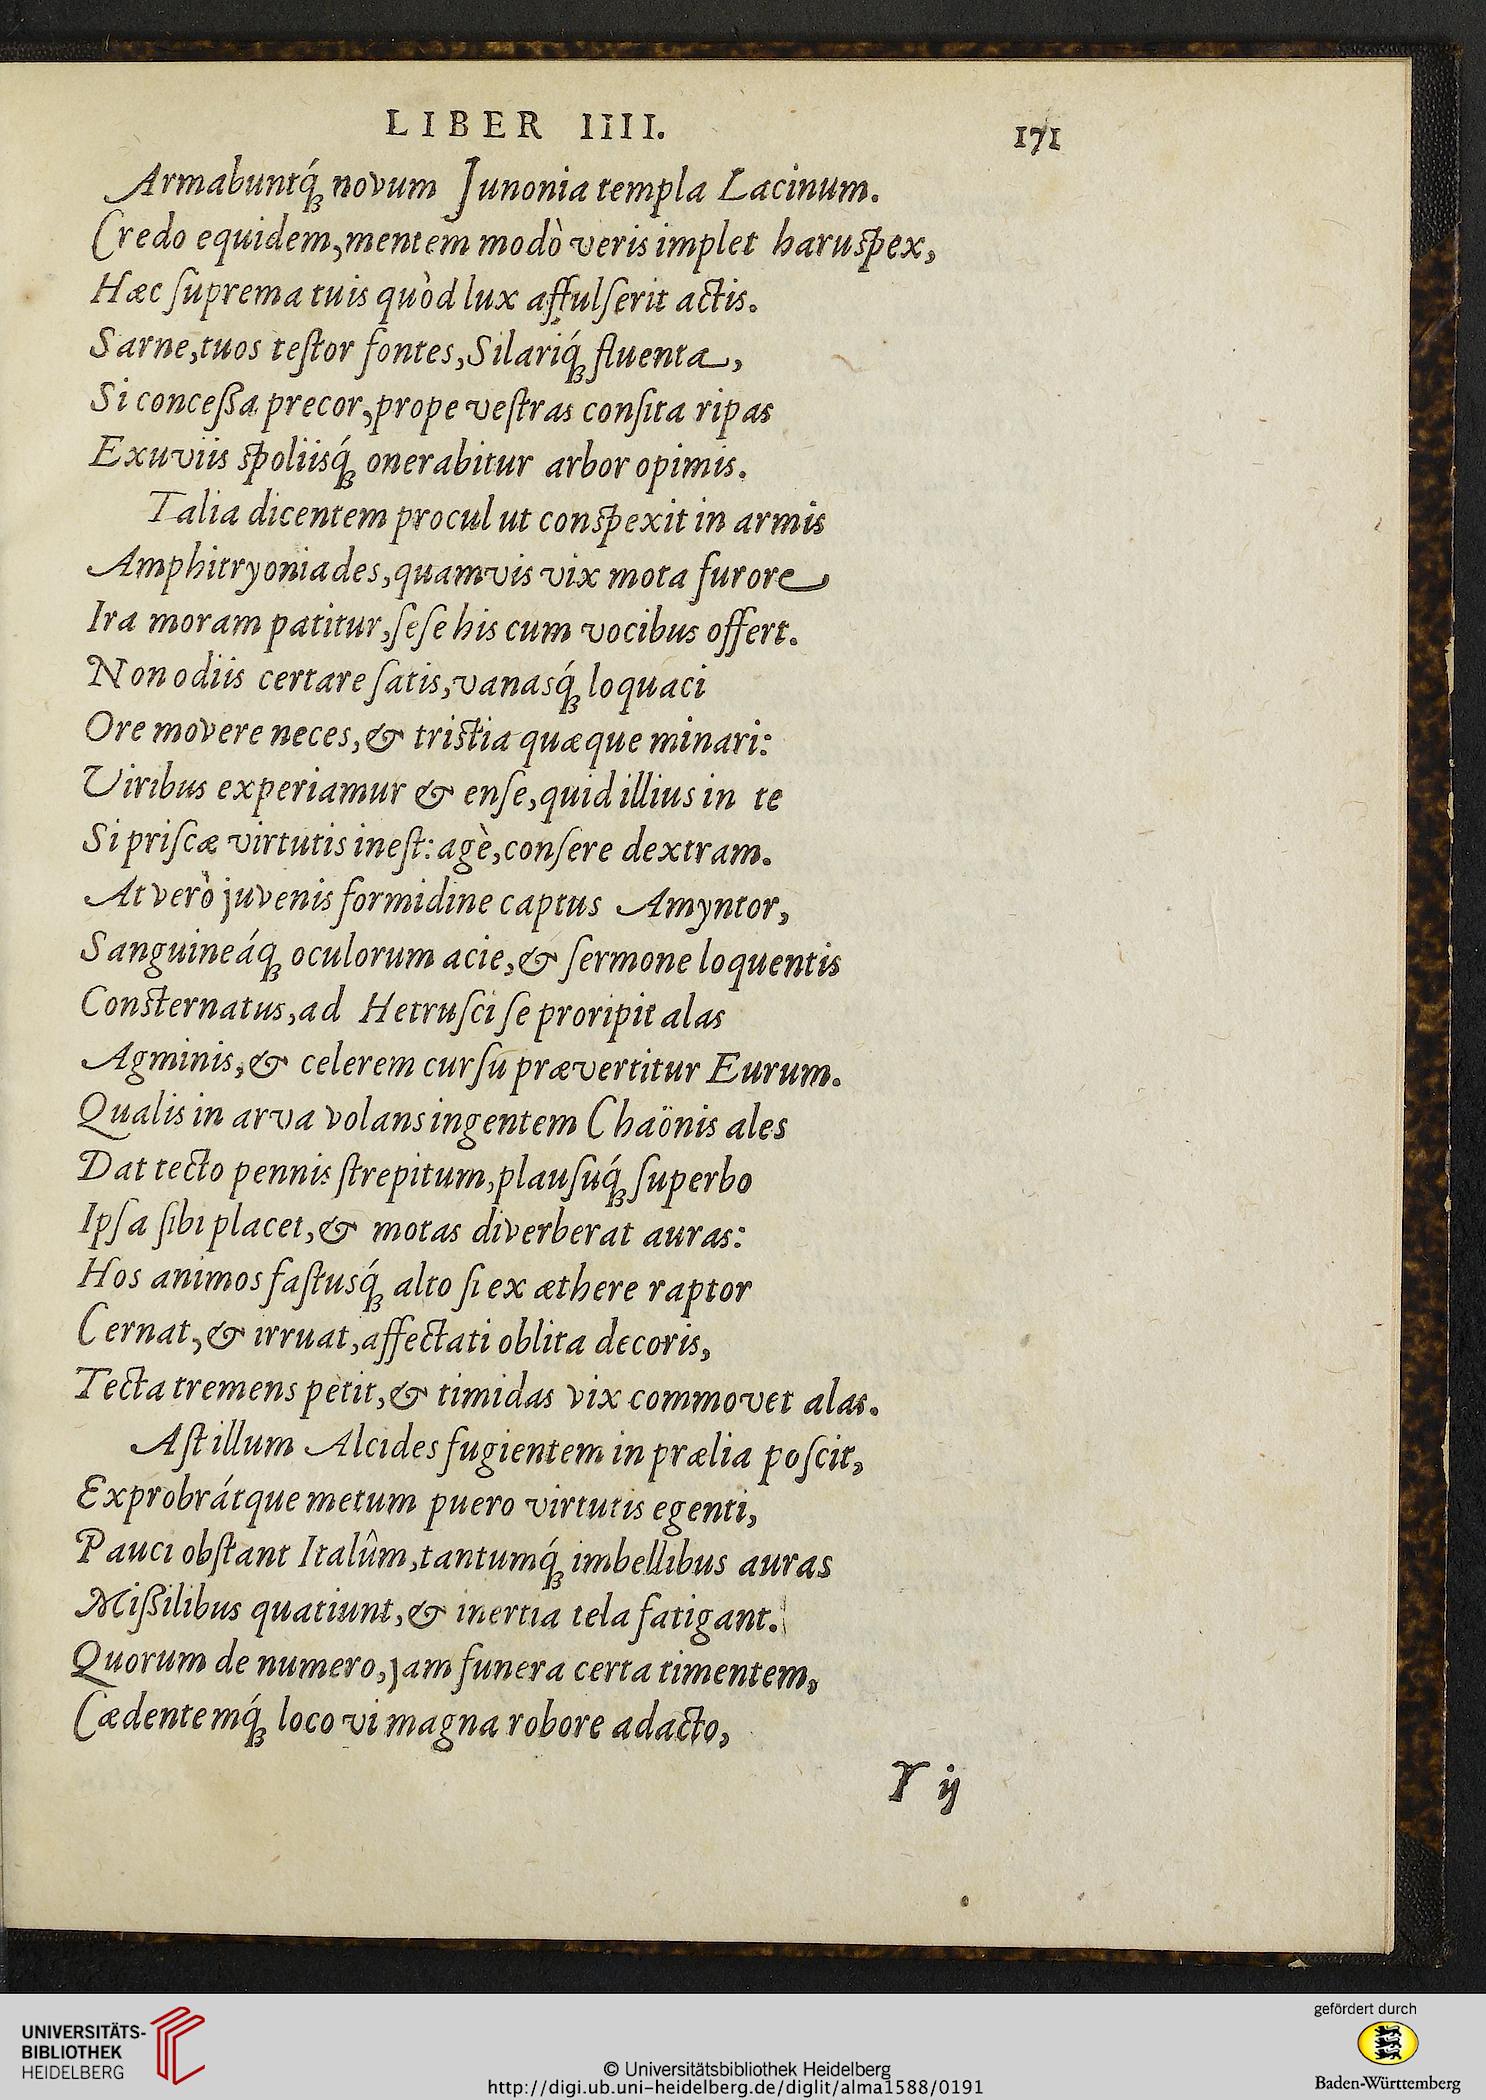 LIBER IIII. 171
Armabuntq́ꝫ novum Junonia templa Lacinum.
Credo equidem, mentem modò veris implet haruspex,
Hæc ſuprema tuis quòd lux affulſerit actis.
Sarne, tuos teſtor fontes, Silariq́ꝫ fluenta,
Si conceßa precor, prope veſtras conſita ripas
Exuviis spoliisq́ꝫ onerabitur arbor opimis.
Talia dicentem procul ut conspexit in armis
Amphitryoniades, quamvis vix mota furore
Ira moram patitur, ſeſe his cum vocibus offert.
Non odiis certare ſatis, vanasq́ꝫ loquaci
Ore movere neces, & tristia quæque minari:
Viribus experiamur & enſe, quid illius in te
Si priſcæ virtutis ineſt: agè, conſere dextram.
At verò juvenis formidine captus Amyntor,
Sanguineáqꝫ oculorum acie, & ſermone loquentis
Consternatus, ad Hetruſci ſe proripit alas
Agminis, & celerem curſu prævertitur Eurum.
Qualis in arva volans ingentem Chaönis ales
Dat tecto pennis ſtrepitum, plauſuq́ꝫ ſuperbo
Ipſa ſibi placet, & motas diverberat auras:
Hos animos faſtusq́ꝫ alto ſi ex æthere raptor
Cernat, & irruat, affectati oblita decoris,
Tecta tremens petit, & timidas vix commovet alas.
Aſt illum Alcides fugientem in prælia poſcit,
Exprobrátque metum puero virtutis egenti,
Pauci obſtant Italûm, tantumq́ꝫ imbellibus auras
Mißilibus quatiunt, & inertia tela fatigant.
Quorum de numero, jam funera certa timentem,
Cædentemq́ꝫ loco vi magna robore adacto,
Y ij
UNIVERSITÄTS-
BIBLIOTHEK
HEIDELBERG
© Universitätsbibliothek Heidelberg
http://digi.ub.uni-heidelberg.de/diglit/alma1588/0191
gefördert durch
Baden-Württemberg